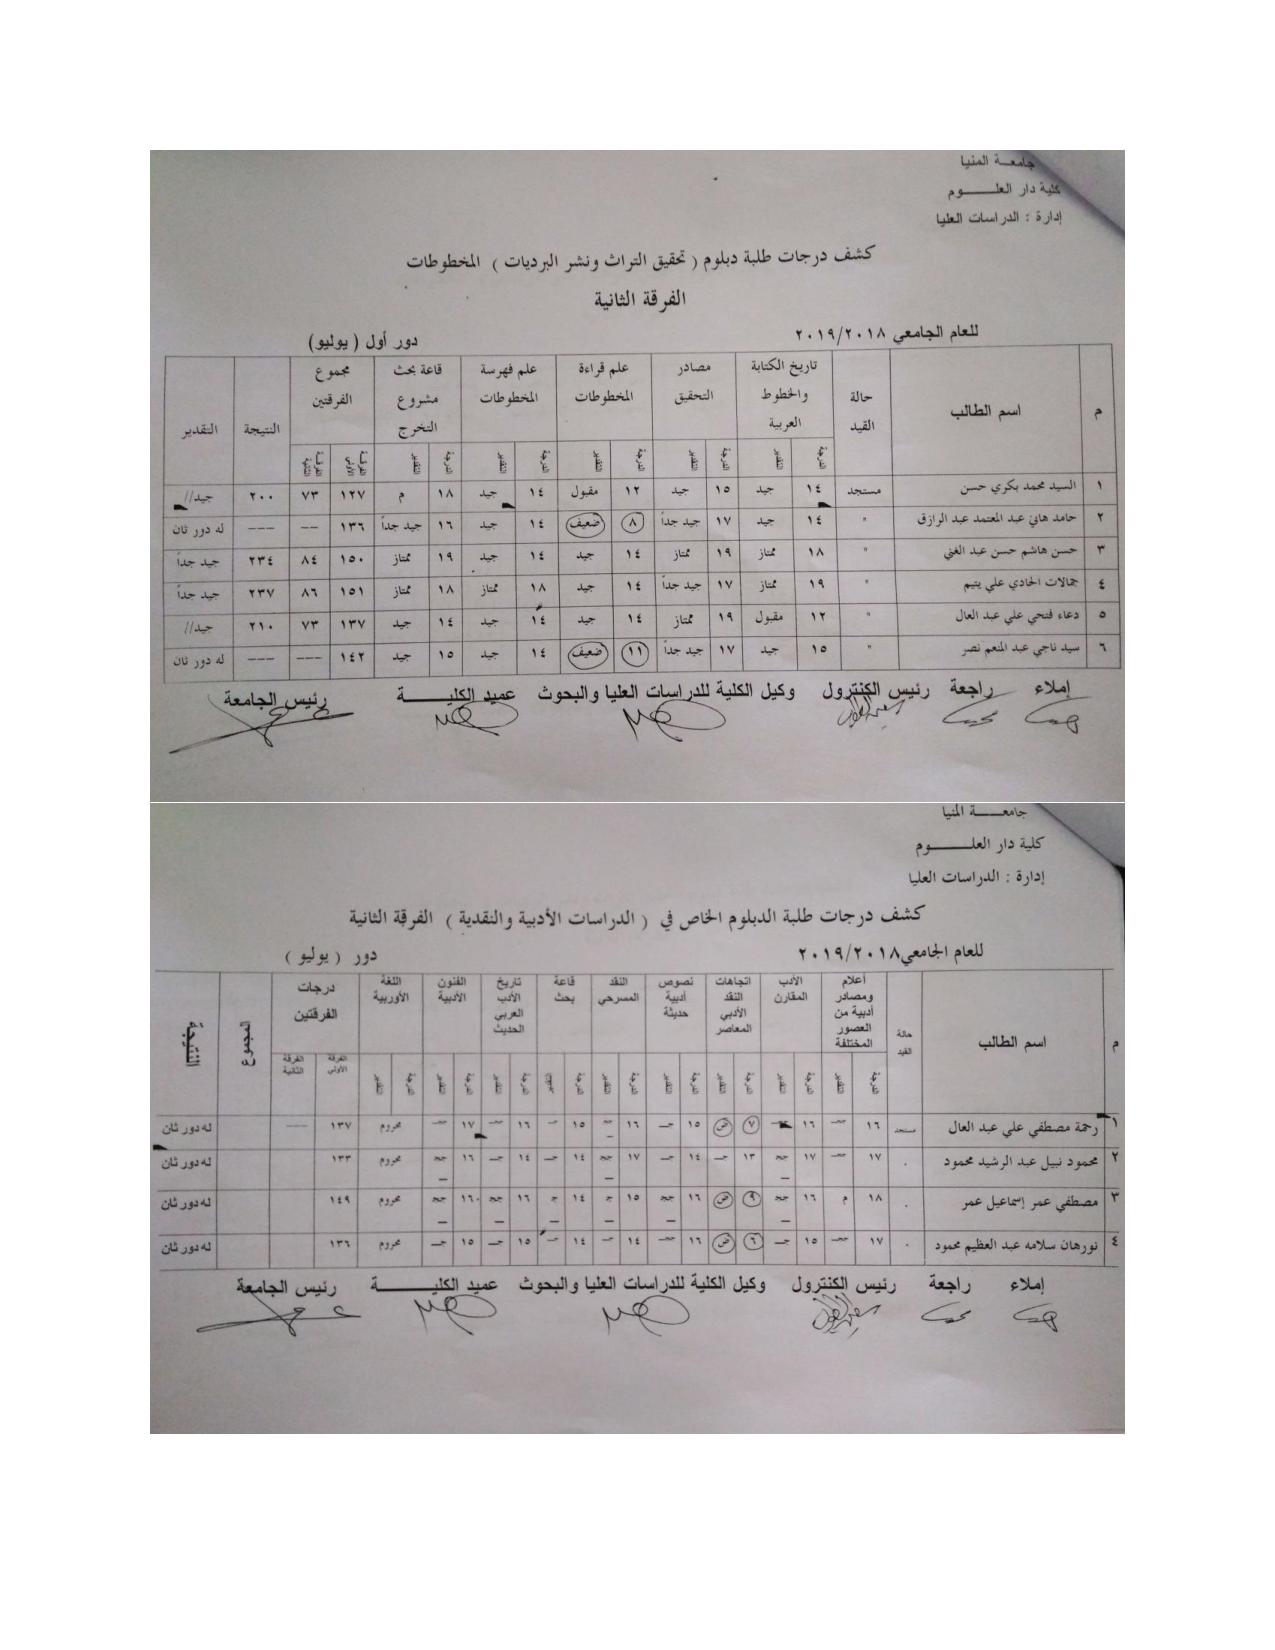 جامعـة المنيا
كلية دار العلـــــوم
إدارة : الدراسات العليا
كشف درجات طلبة دبلوم ( تحقيق التراث ونشر البرديات ) المخطوطات
الفرقة الثانية
للعام الجامعي ٢٠١٩/٢٠١٨ دور أول ( يوليو)
م اسم الطالب حالة القيد تاريخ الكتابة والخطوط العربية مصادر التحقيق علم قراءة المخطوطات علم فهرسة المخطوطات قاعة بحث مشروع التخرج مجموع الفرقتين النتيجة التقدير
الدرجة التقدير الدرجة التقدير الدرجة التقدير الدرجة التقدير الدرجة التقدير الفرقة الأولى الفرقة الثانية
١ السيد محمد بكري حسن مستجد ١٤ جيد ١٥ جيد ١٢ مقبول ١٤ جيد ١٨ م ١٢٧ ٧٣ ٢٠٠ جيد//
٢ حامد هاني عبد المعتمد عبد الرازق " ١٤ جيد ١٧ جيد جداً ٨ ضعيف ١٤ جيد ١٦ جيد جداً ١٣٦ -- --- له دور ثان
٣ حسن هاشم حسن عبد الغني " ١٨ ممتاز ١٩ ممتاز ١٤ جيد ١٤ جيد ١٩ ممتاز ١٥٠ ٨٤ ٢٣٤ جيد جداً
٤ جمالات الحادي علي يتيم " ١٩ ممتاز ١٧ جيد جداً ١٤ جيد ١٨ ممتاز ١٨ ممتاز ١٥١ ٨٦ ٢٣٧ جيد جداً
٥ دعاء فتحي علي عبد العال " ١٢ مقبول ١٩ ممتاز ١٤ جيد ١٤ جيد ١٤ جيد ١٣٧ ٧٣ ٢١٠ جيد//
٦ سيد ناجي عبد المنعم نصر " ١٥ جيد ١٧ جيد جداً ١١ ضعيف ١٤ جيد ١٥ جيد ١٤٢ --- --- له دور ثان
إملاء راجعة رئيس الكنترول وكيل الكلية للدراسات العليا والبحوث عميد الكليـــــة رئيس الجامعة
جامعـــة المنيا
كلية دار العلـــــوم
إدارة : الدراسات العليا
كشف درجات طلبة الدبلوم الخاص في ( الدراسات الأدبية والنقدية ) الفرقة الثانية
للعام الجامعي٢٠١٩/٢٠١٨ دور ( يوليو )
م اسم الطالب حالة القيد أعلام ومصادر أدبية من العصور المختلفة الأدب المقارن اتجاهات النقد الأدبي المعاصر نصوص أدبية حديثة النقد المسرحي قاعة بحث تاريخ الأدب العربي الحديث الفنون الأدبية اللغة الأوربية درجات الفرقتين المجموع النتيجة
الدرجة التقدير الدرجة التقدير الدرجة التقدير الدرجة التقدير الدرجة التقدير الدرجة الدرجة التقدير الدرجة التقدير الدرجة التقدير الفرقة الأولى الفرقة الثانية
١ رحمة مصطفي علي عبد العال مستجد ١٦ ١٦ ٧ ض ١٥ جـ ١٦ ١٥ ١٦ ١٧ محروم ١٣٧ --- له دور ثان
٢ محمود نبيل عبد الرشيد محمود ١٧ ١٧ جج ١٣ جـ ١٤ جـ ١٧ جج ١٤ جـ ١٤ جـ ١٦ جج محروم ١٣٣ له دور ثان
٣ مصطفي عمر إسماعيل عمر ١٨ م ١٦ جج ٩ ض ١٦ جج ١٥ ج ١٤ ج ١٦ جج ١٦ جج محروم ١٤٩ له دور ثان
٤ نورهان سلامه عبد العظيم محمود ١٧ ١٥ جـ ٦ ض ١٦ ١٤ جـ ١٤ جـ ١٥ جـ ١٥ جـ محروم ١٣٦ له دور ثان
إملاء راجعة رئيس الكنترول وكيل الكلية للدراسات العليا والبحوث عميد الكليـــــة رئيس الجامعة